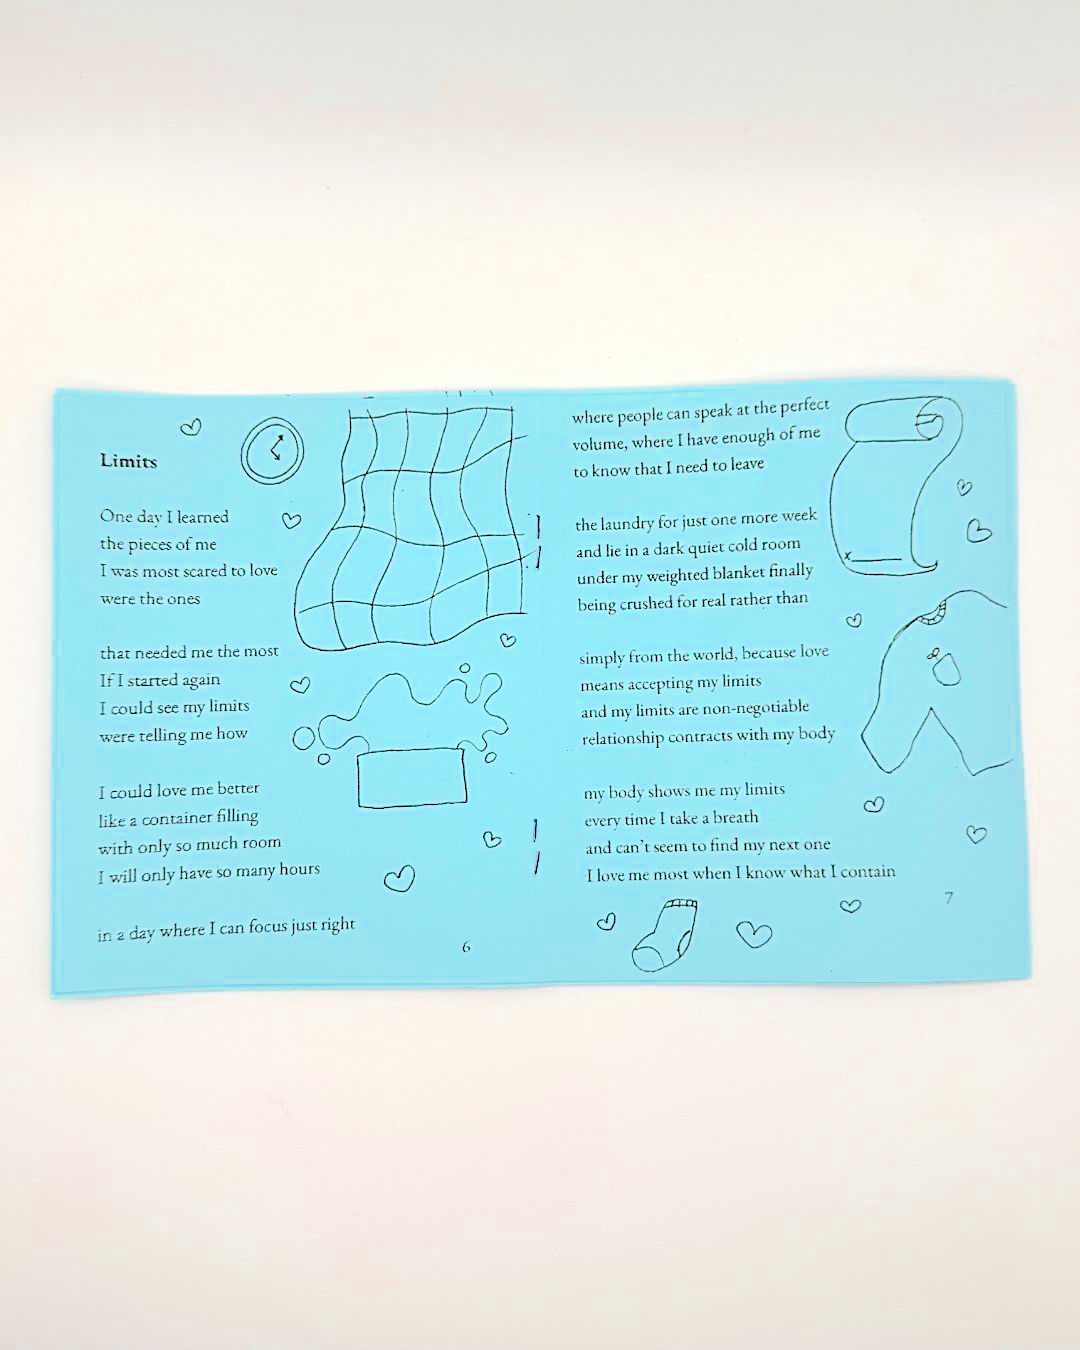 Limits
One day I learned
the pieces of me
I was most scared to love
were the ones
that needed me the most
If I started again
I could see my limits
were telling me how
I could love me better
like a container filling
with only so much room
I will only have so many hours
in a day where I can focus just right
6
where people can speak at the perfect
volume, where I have enough of me
to know that I need to leave
the laundry for just one more week
and lie in a dark quiet cold room
under my weighted blanket finally
being crushed for real rather than
simply from the world, because love
means accepting my limits
and my limits are non-negotiable
relationship contracts with my body
my body shows me my limits
every time I take a breath
and can't seem to find my next one
I love me most when I know what I contain
7
x